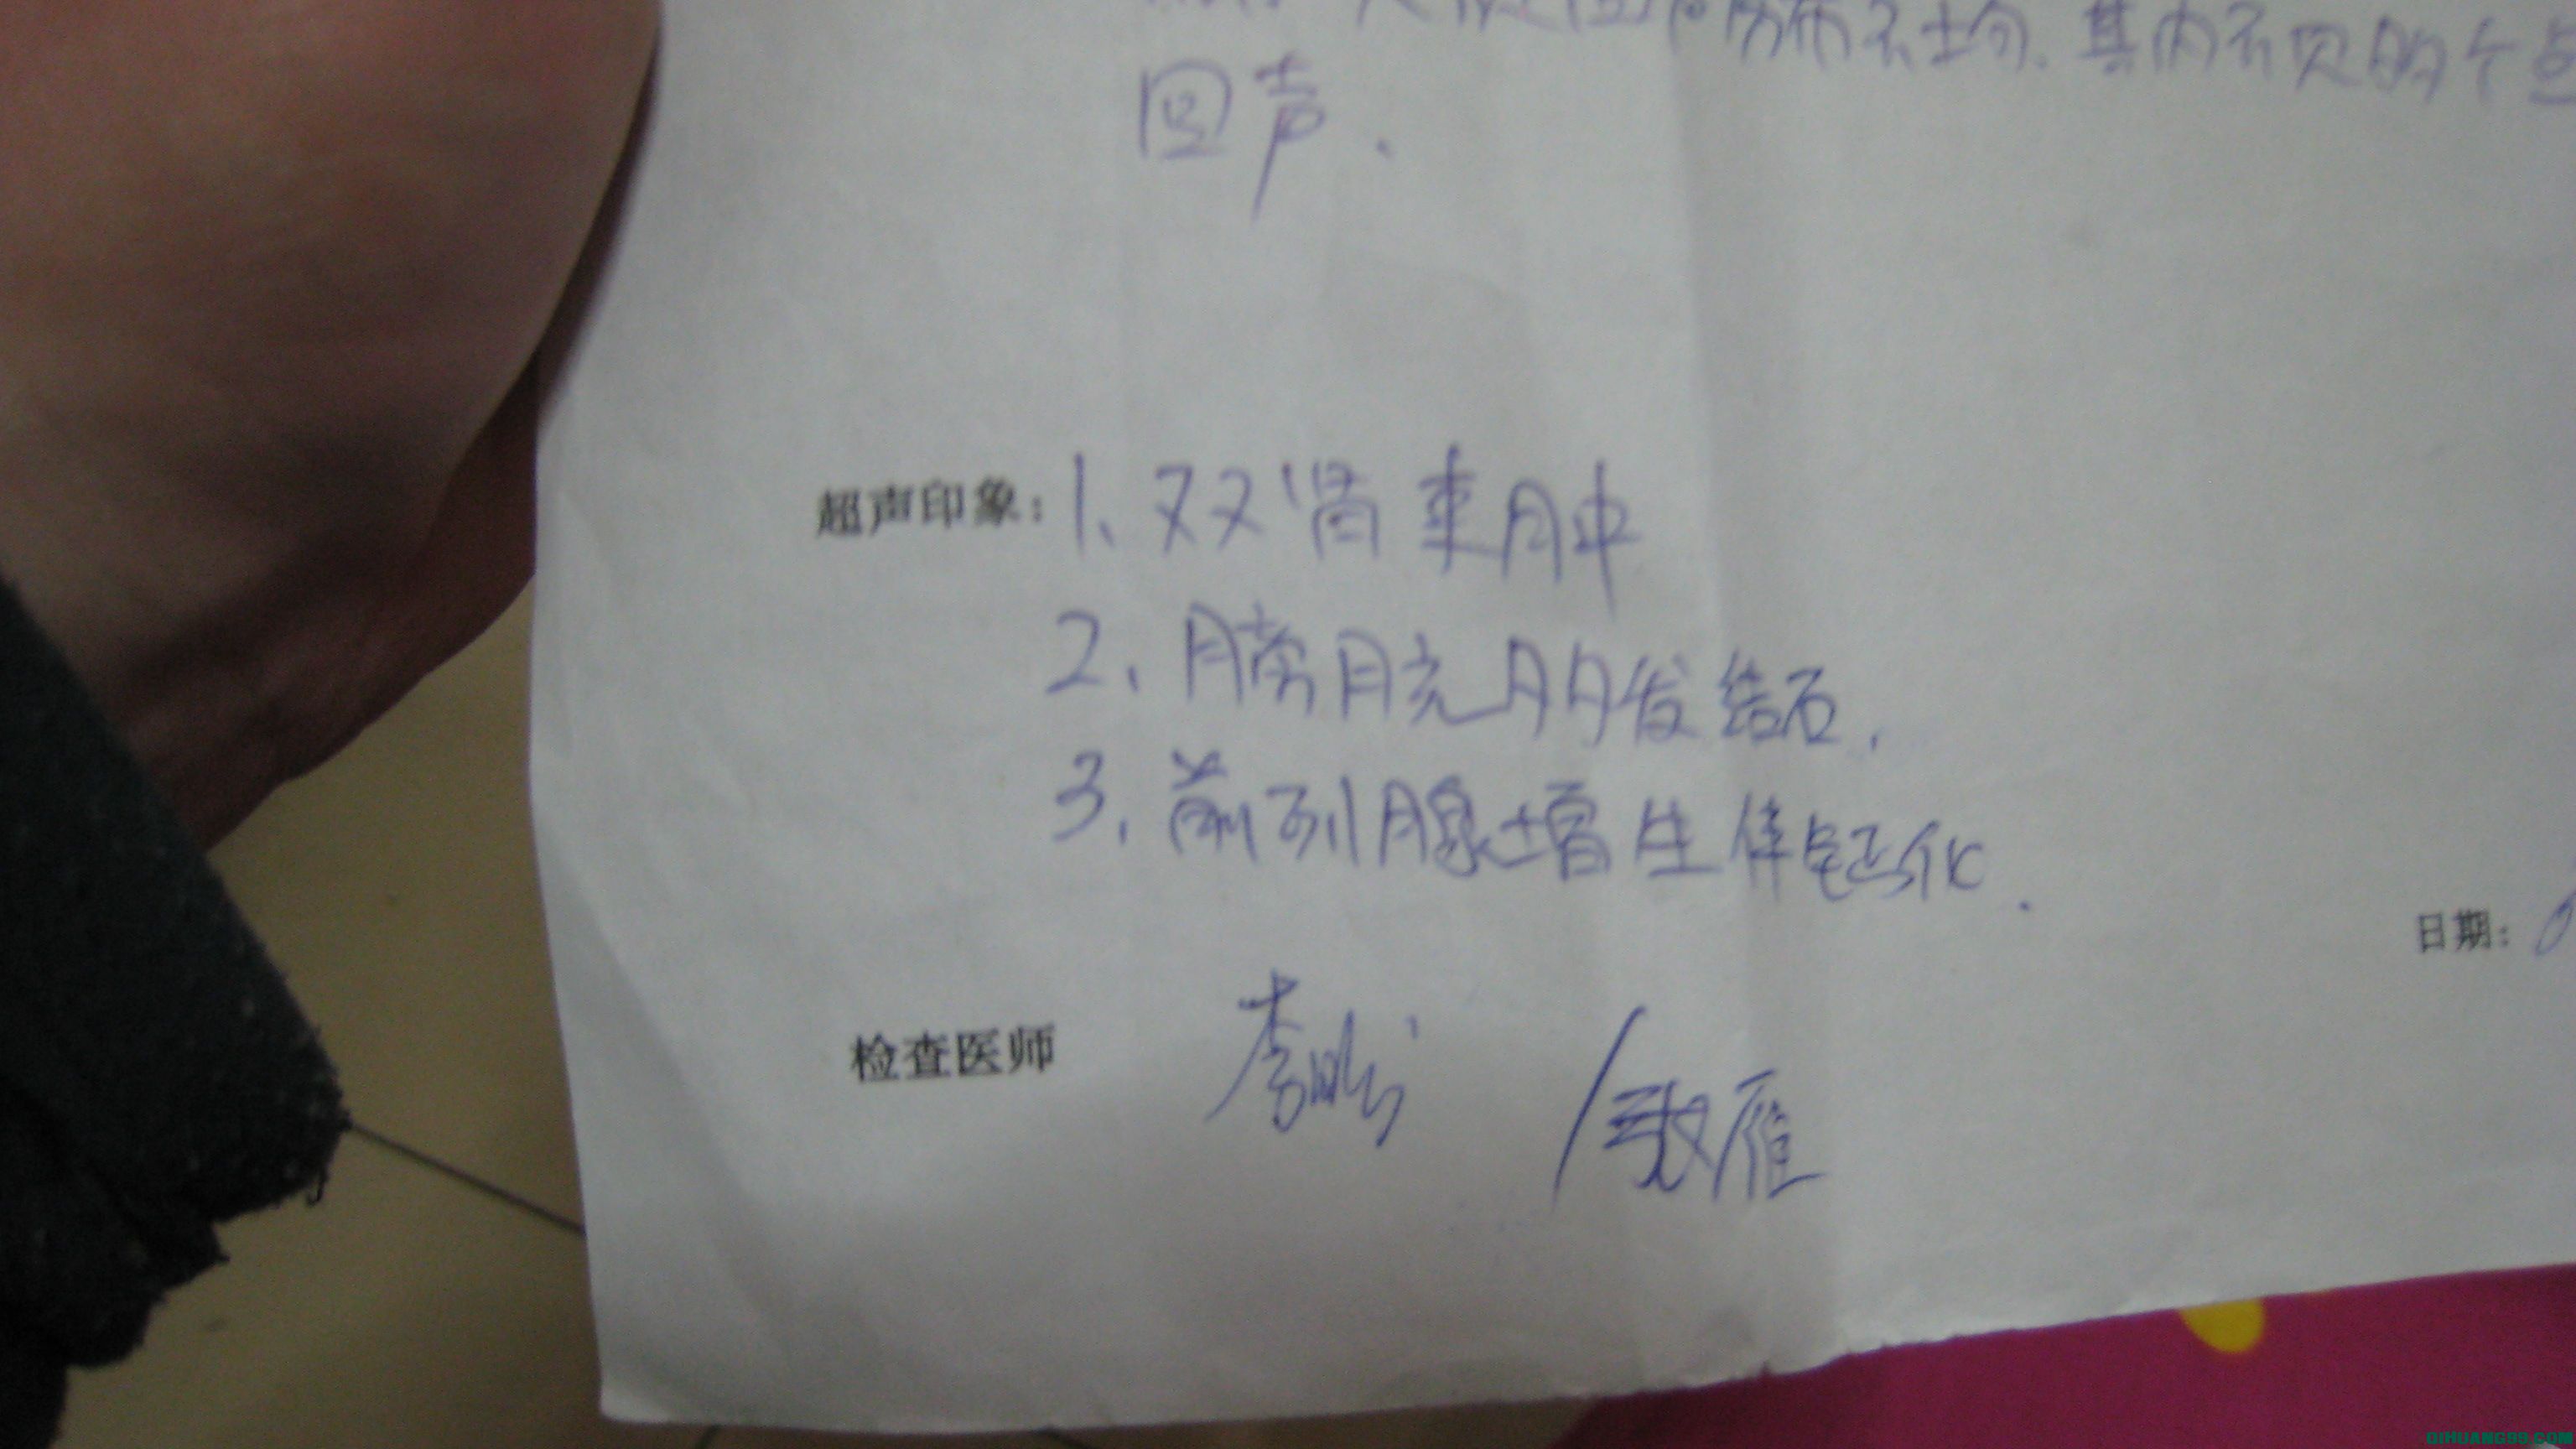 布不均.其内不见的个
回声.
超声印象: 1、双肾囊肿
2、膀胱多发结石.
3、前列腺增生伴钙化.
日期:
检查医师 李 / 雁
QIHUANG99.COM